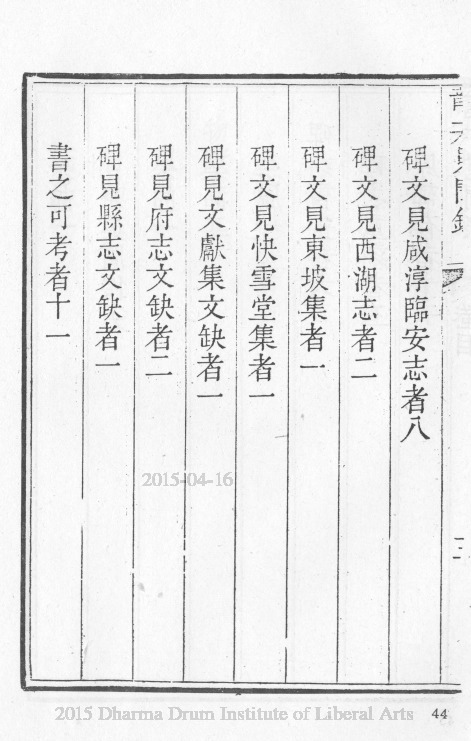 碑文見咸淳臨安志者八
碑文見西湖志者二
碑文見東坡集者一
碑文見快雪堂集者一
碑見文獻集文缺者一
碑見府志文缺者二
碑見縣志文缺者一
書之可考者十一
2015-04-16
2015 Dharma Drum Institute of Liberal Arts
44